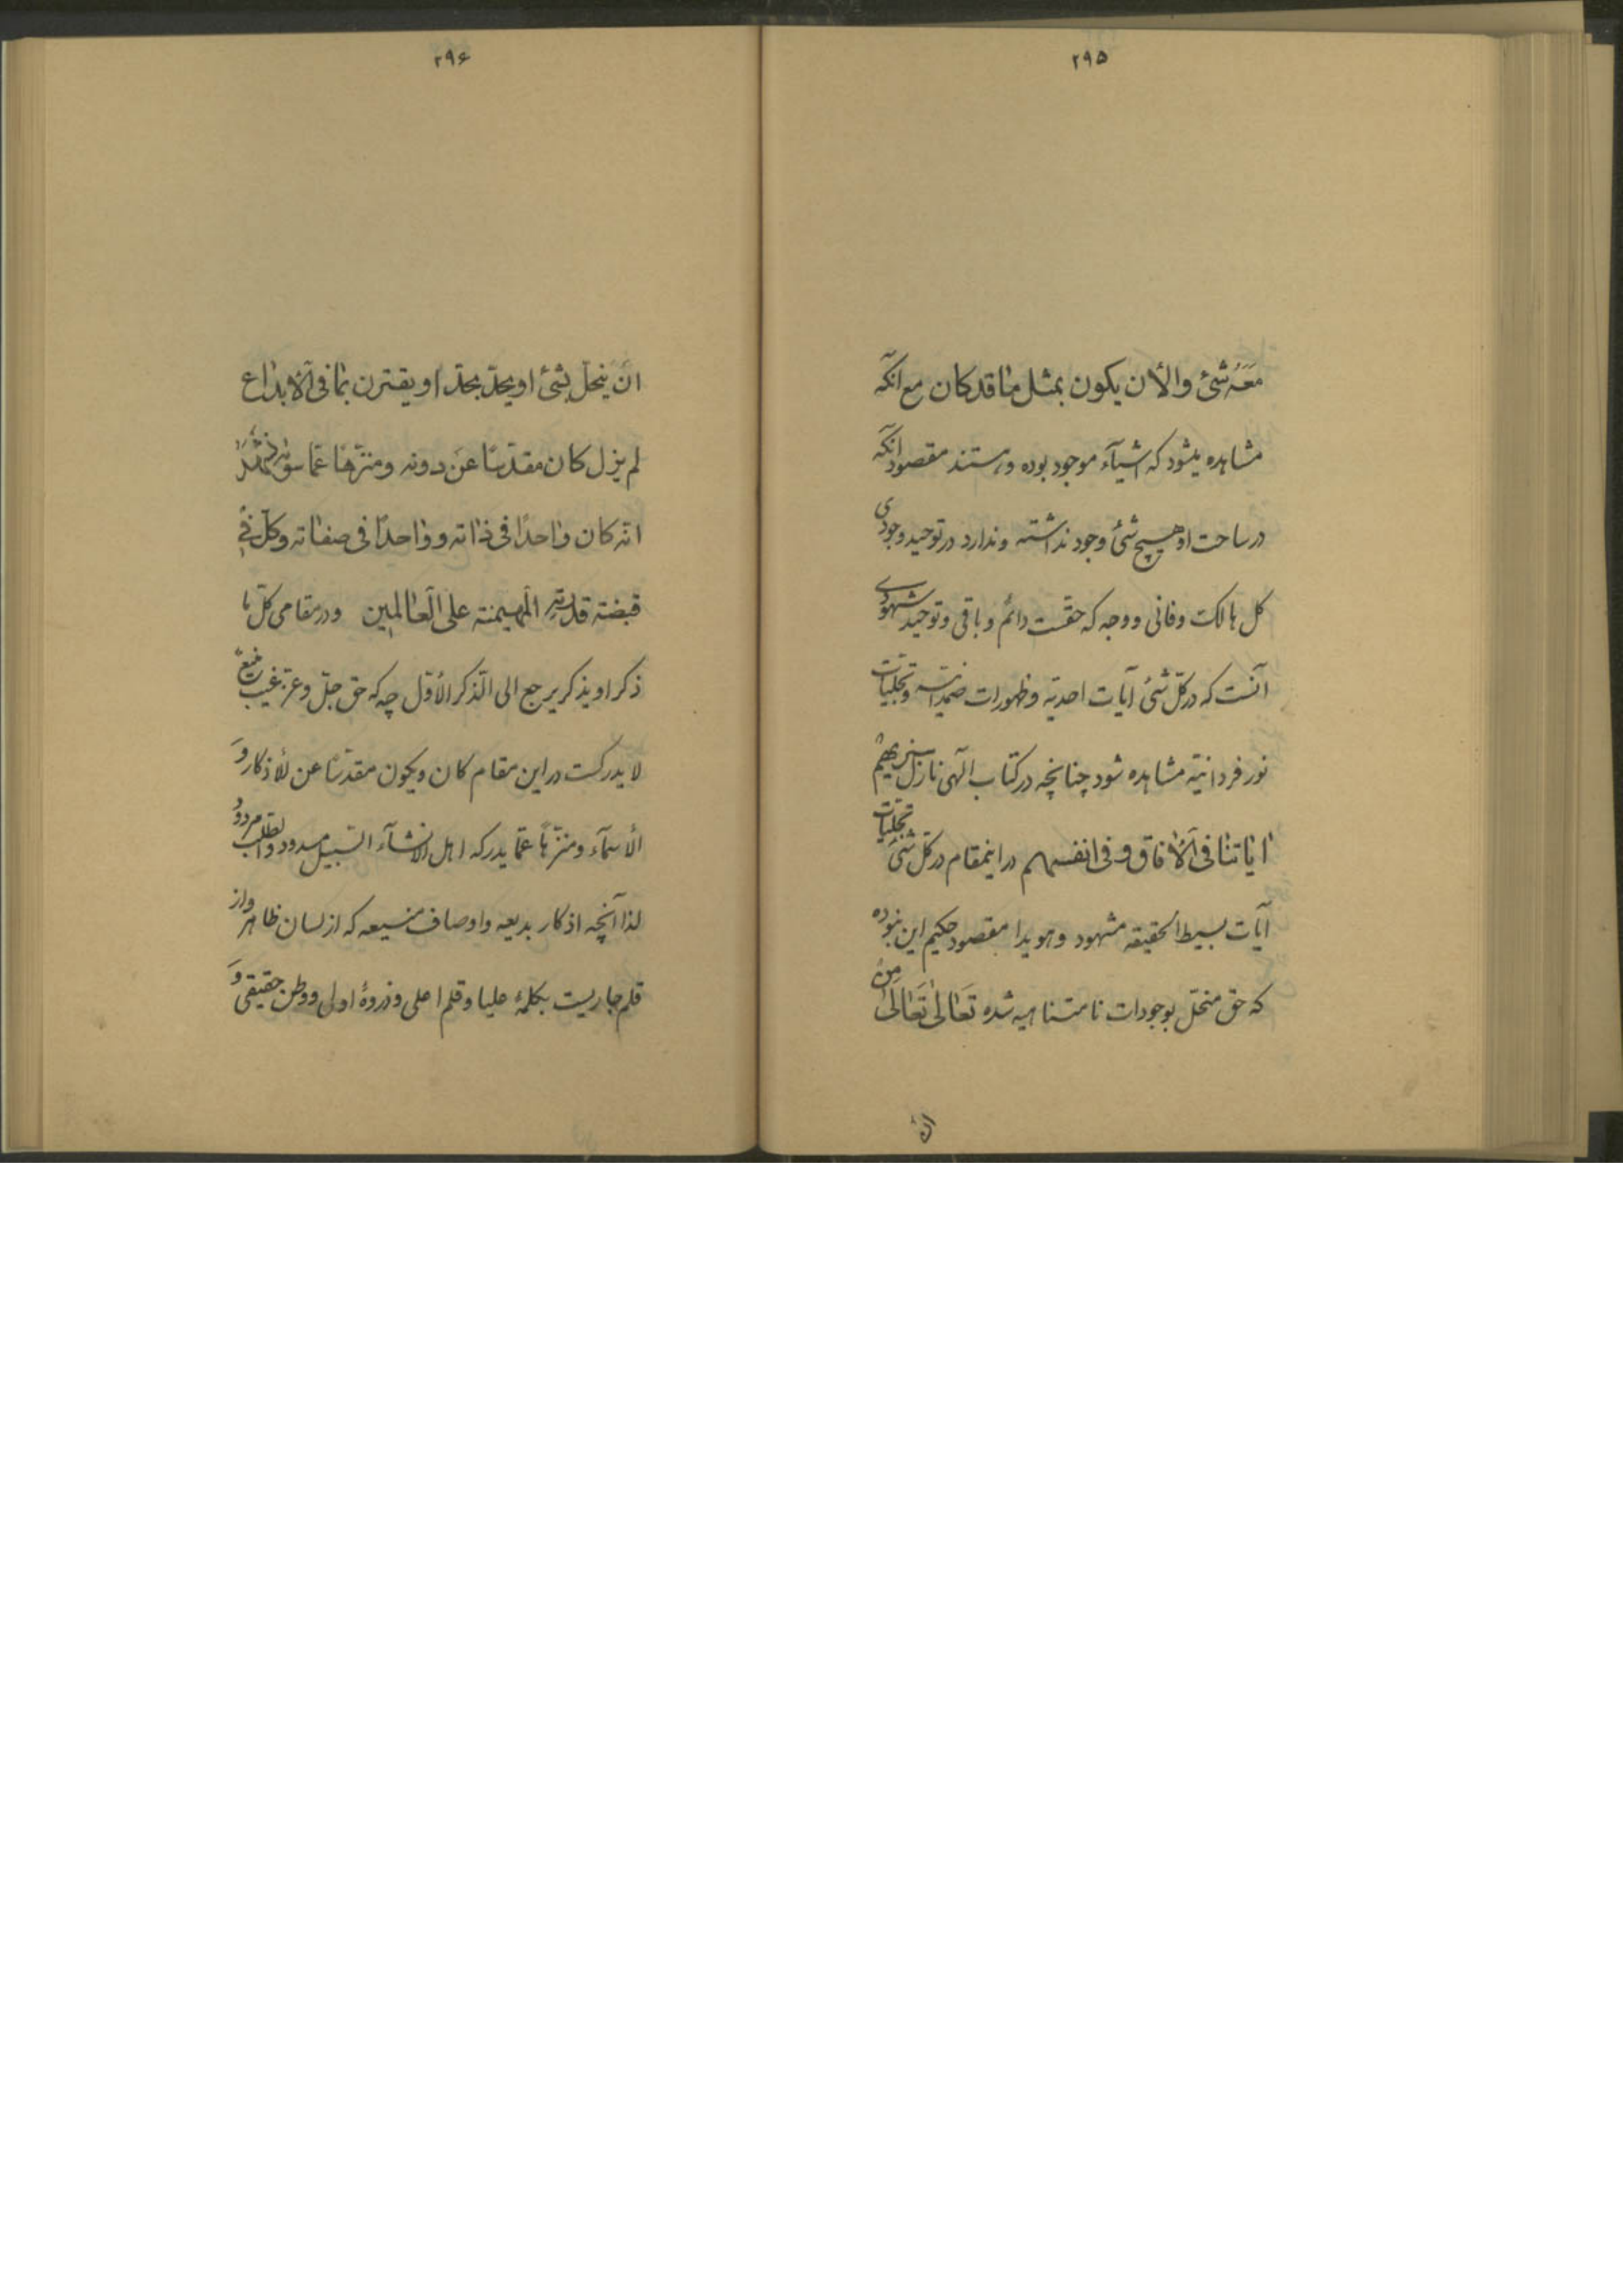 ۲۹۵
مَعَهُ شئ والأن يكون بمثل ما قد كان مع آنكه
مشاهده ميشود كه اشيآء موجود بوده وهستند مقصود آنكه
در ساحت او هيچ شئ وجود نداشته وندارد در توحيد وجودى
كل هالك وفانى ووجه كه حقست دائم وباقى وتوحيد شهودى
آنست كه در كلّ شئ آيات احديّه وظهورات صمدانيّه وتجلّيات
نور فردانيّه مشاهده شود چنانچه در كتاب الهى نازل سنريهم
اياتنا فى الآفاق وفى انفسهم در اينمقام در كل شئ تجلّيات
آيات بسيط الحقيقه مشهود وهويدا مقصود حكيم اين نبوده
كه حق منحلّ بوجودات نامتناهيه شده تَعَالىٰ تَعَالىٰ مِنْ
۲۹۶
ان ينحلّ بشئ او يحدّ بحدّ او يقترن بما فى الابداع
لم يزل كان مقدّسًا عن دونه ومنزّهًا عمّا سويه نشهد
انّه كان واحدًا فى ذاته وواحدًا فى صفاته وكلّ فى
قبضة قدرته المهيمنة على العالمين ودر مقامى كلّ ما
ذكر او يذكر يرجع الى الذّكر الأوّل چه كه حق جلّ وعزّ غيب منيع
لا يدركست در اين مقام كان ويكون مقدّسًا عن الأذكار و
الأسمآء ومنزّهاً عمّا يدركه اهل الانشآء السّبيل مسدود والطّلب مردود
لذا آنچه اذكار بديعه واوصاف منيعه كه از لسان ظاهر واز
قلم جاريست بكلمهٔ عليا وقلم اعلى وذروهٔ اولى ووطن حقيقى و